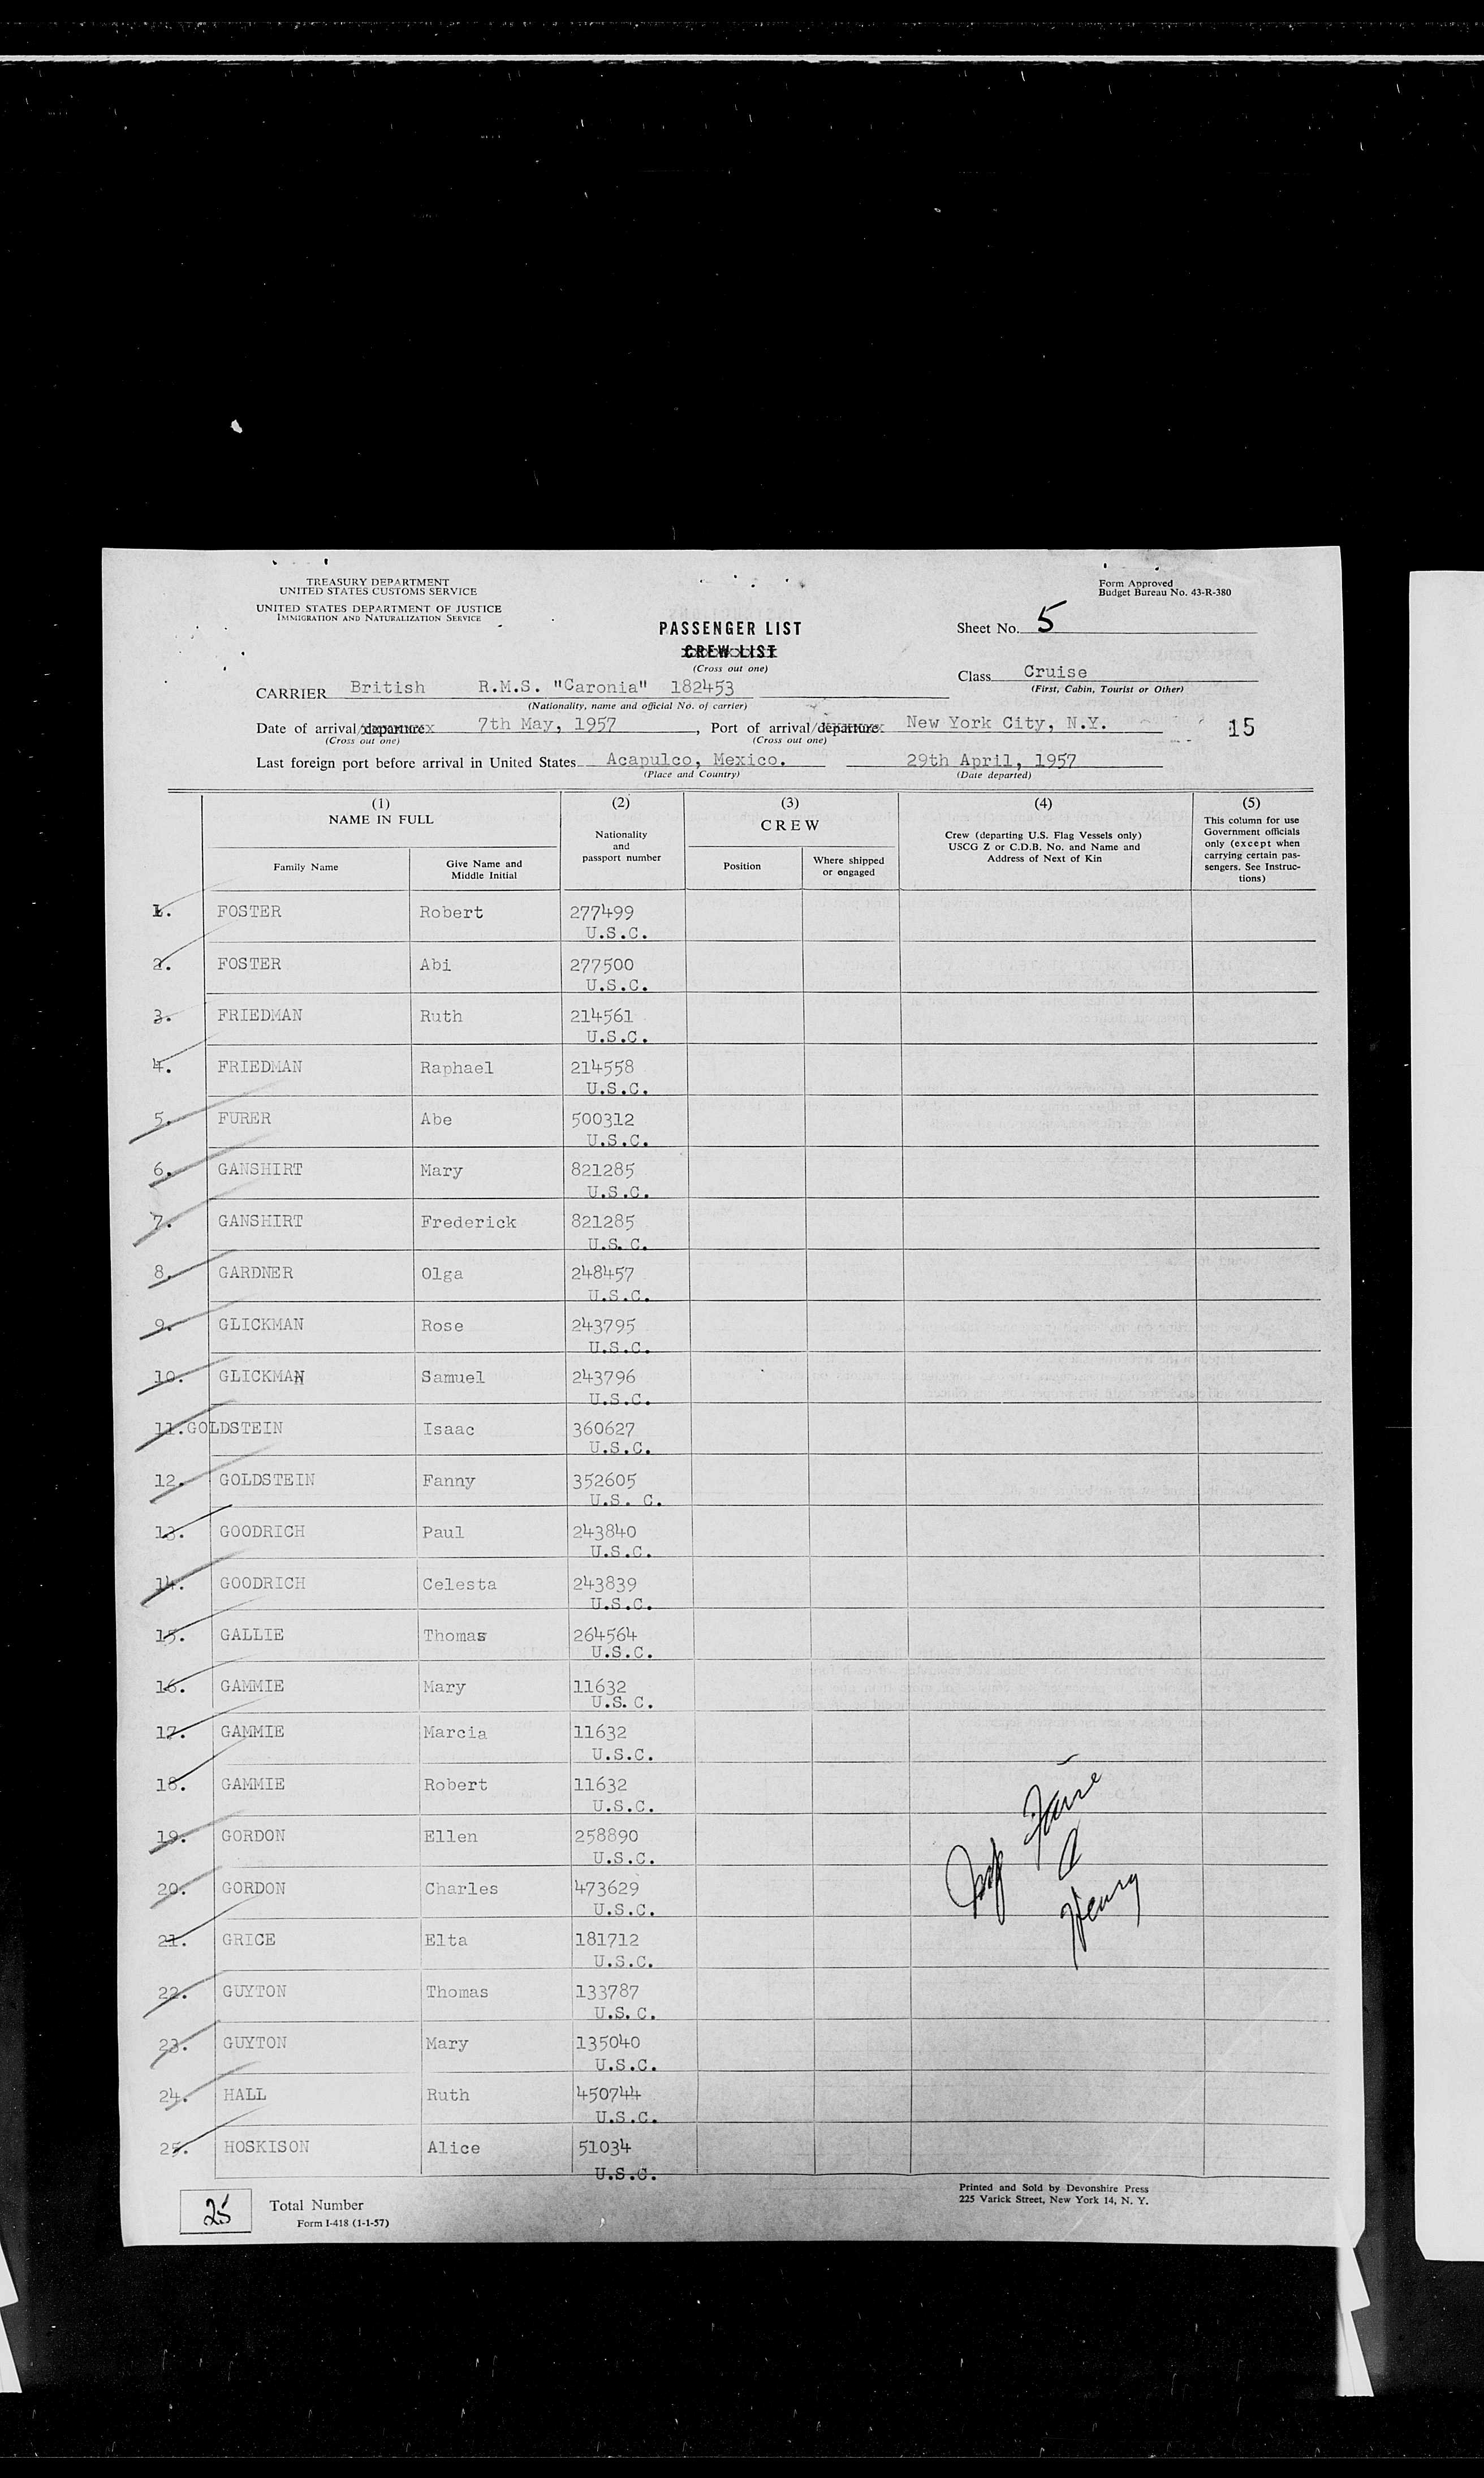 TREASURY DEPARTMENT
UNITED STATES CUSTOMS SERVICE
UNITED STATES DEPARTMENT OF JUSTICE
IMMIGRATION AND NATURALIZATION SERVICE
Form Approved
Budget Bureau No. 43-R-380
PASSENGER LIST
CREW LIST
(Cross out one)
Sheet No. 5
Class Cruise
(First, Cabin, Tourist or Other)
CARRIER British R.M.S. "Caronia" 182453
(Nationality, name and official No. of carrier)
Date of arrival/departure 7th May, 1957, Port of arrival/departure New York City, N.Y. 15
(Cross out one) (Cross out one)
Last foreign port before arrival in United States Acapulco, Mexico. 29th April, 1957
(Place and Country) (Date departed)
(1) (2) (3) (4) (5)
NAME IN FULL
Family Name
Give Name and
Middle Initial
Nationality
and
passport number
CREW
Position
Where shipped
or engaged
Crew (departing U.S. Flag Vessels only)
USCG Z or C.D.B. No. and Name and
Address of Next of Kin
This column for use
Government officials
only (except when
carrying certain pas-
sengers. See Instruc-
tions)
1. FOSTER Robert 277499
U.S.C.
2. FOSTER Abi 277500
U.S.C.
3. FRIEDMAN Ruth 214561
U.S.C.
4. FRIEDMAN Raphael 214558
U.S.C.
5. FURER Abe 500312
U.S.C.
6. GANSHIRT Mary 821285
U.S.C.
7. GANSHIRT Frederick 821285
U.S. C.
8. GARDNER Olga 248457
U.S.C.
9. GLICKMAN Rose 243795
U.S.C.
10. GLICKMAN Samuel 243796
U.S.C.
11.GOLDSTEIN Isaac 360627
U.S.C.
12. GOLDSTEIN Fanny 352605
U.S. C.
13. GOODRICH Paul 243840
U.S.C.
14. GOODRICH Celesta 243839
U.S.C.
15. GALLIE Thomas 264564
U.S.C.
16. GAMMIE Mary 11632
U.S. C.
17. GAMMIE Marcia 11632
U.S.C.
18. GAMMIE Robert 11632
U.S.C.
19. GORDON Ellen 258890
U.S.C.
20. GORDON Charles 473629
U.S.C.
21. GRICE Elta 181712
U.S.C.
22. GUYTON Thomas 133787
U.S. C.
23. GUYTON Mary 135040
U.S.C.
24. HALL Ruth 450744
U.S.C.
25. HOSKISON Alice 51034
U.S.C.
Henry
25 Total Number
Form I-418 (1-1-57)
Printed and Sold by Devonshire Press
225 Varick Street, New York 14, N. Y.